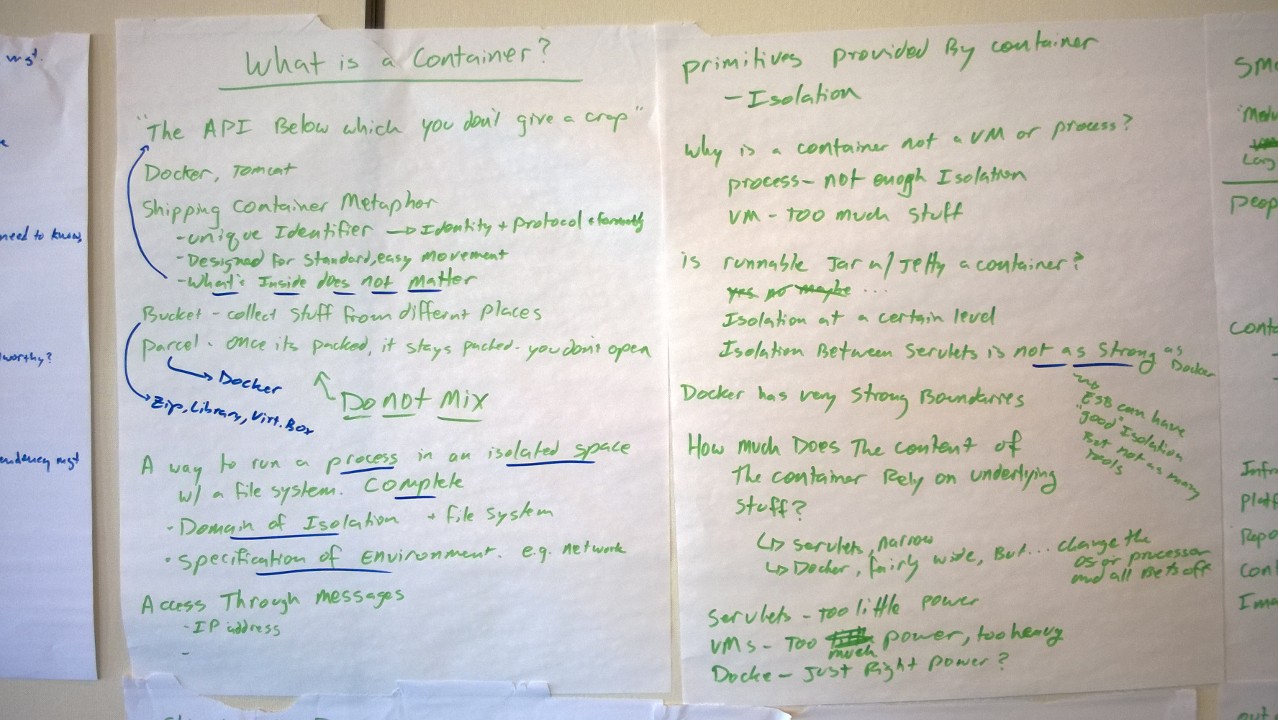 ws'.
e
need to know
worthy?
endency mgt
What is a Container?
"The API Below which you don't give a crap"
Docker, Tomcat
Shipping Container Metaphor
-unique Identifier → Identity + Protocol +
-Designed for Standard, easy movement
-What's Inside does not matter
Bucket - collect stuff from differnt Places
Parcel - once its packed, it stays packed. you don't open
→ Docker
Zip, Library, Virt. Box
Do not Mix
A way to run a process in an isolated space
w/ a file system. Complete
• Domain of Isolation + File System
• Specification of Environment. e.g. network
Access Through messages
-IP address
-
primitives provided By container
- Isolation
Why is a container not a VM or process?
process - not enogh Isolation
VM - too much stuff
is runnable Jar w/ Jetty a container?
yes no maybe ...
Isolation at a certain level
Isolation Between Servlets is not as strong as Docker
ESB can have
"good" Isolation
But not as many
tools
Docker has very Strong Boundaries
How much Does The content of
The container Rely on underlying
Stuff?
↳ Servlets, narrow
↳ Docker, fairly wide, But... change the
OS or processor
and all Bets off
Servlets - too little power
VMs - Too much power, too heavy
Docke - Just Right power?
Sm
Larg
peop
Conta
Infr
Platf
Repo
Cont
Ima
out